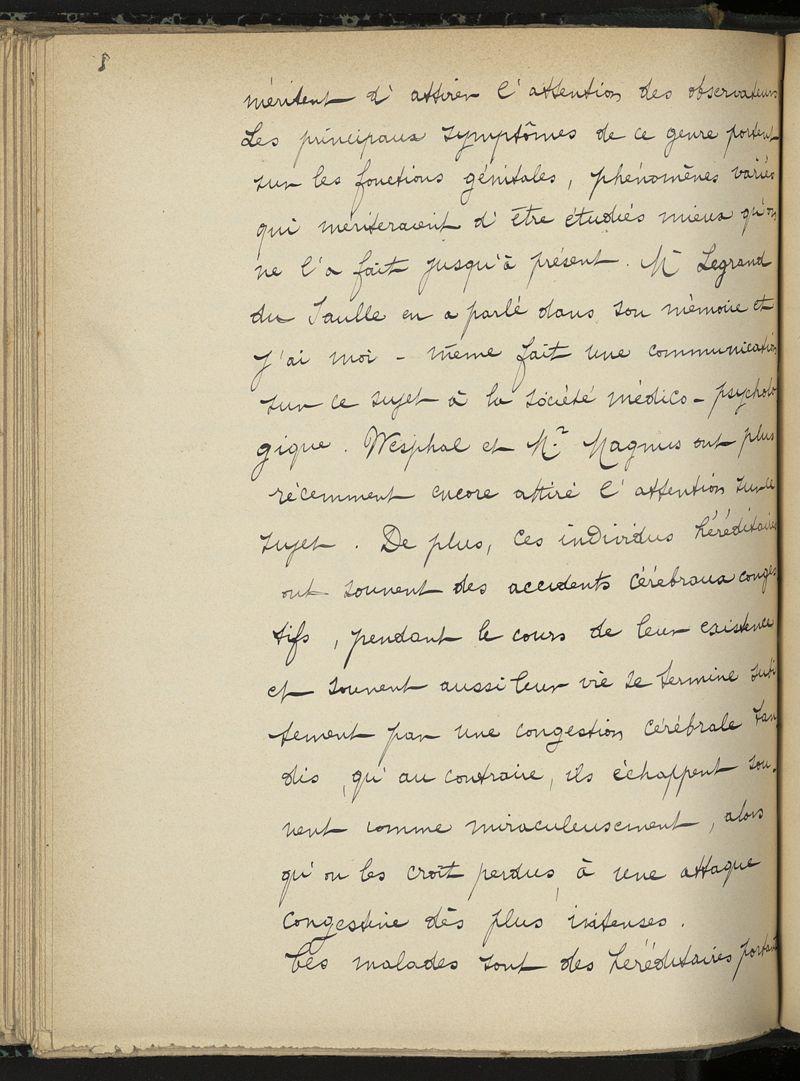 8
méritent d' attirer l'attention des observateurs
Les principaux symptômes de ce genre portent
sur les fonctions génitales, phénomènes variés
qui mériteraient d' être étudiés mieux qu'on
ne l'a fait jusqu'à présent. Mr Legrand
du Saulle en a parlé dans son mémoire et
j'ai moi-même fait une communication
sur ce sujet à la société médico-psycholo
gique. Wesphal et Mr. Magnus ont plus
récemment encore attiré l'attention sur le
sujet. De plus, ces individus héréditaires
ont souvent des accidents cérébraux conges
tifs, pendant le cours de leur existence
et souvent aussi leur vie se termine subi
tement par une congestion cérébrale tan
dis, qu'au contraire, ils échappent sou-
vent comme miraculeusement, alors
qu'on les croit perdus, à une attaque
congestive dès plus intenses.
Ces malades sont des héréditaires portant